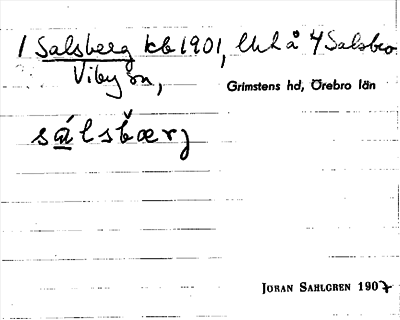 1 Salsberg kb 1901, lhl å 4 Salsbro
Viby sn,
Grimstens hd, Örebro län
sálsbærj
JORAN SAHLGREN 1907